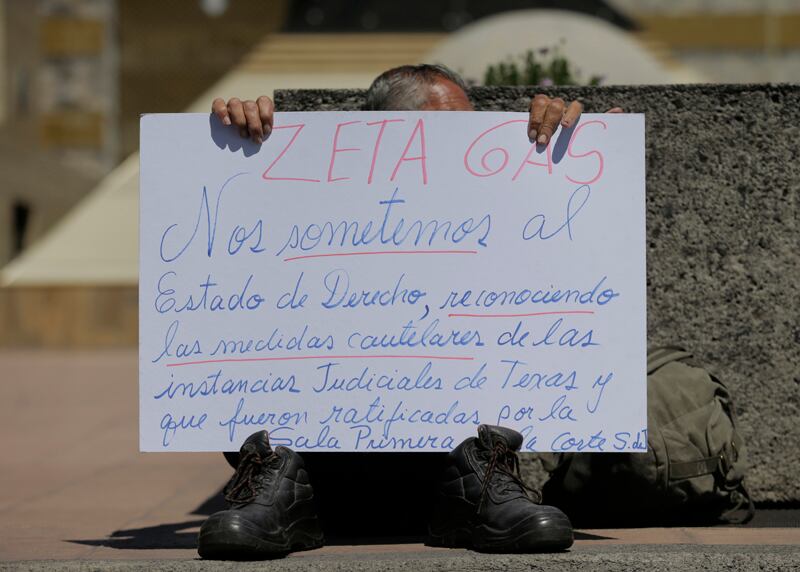 ZETA GAS
Nos sometemos al
Estado de Derecho, reconociendo
las medidas cautelares de las
instancias Judiciales de Texas y
que fueron ratificadas por la
Sala Primera la Corte S. de J